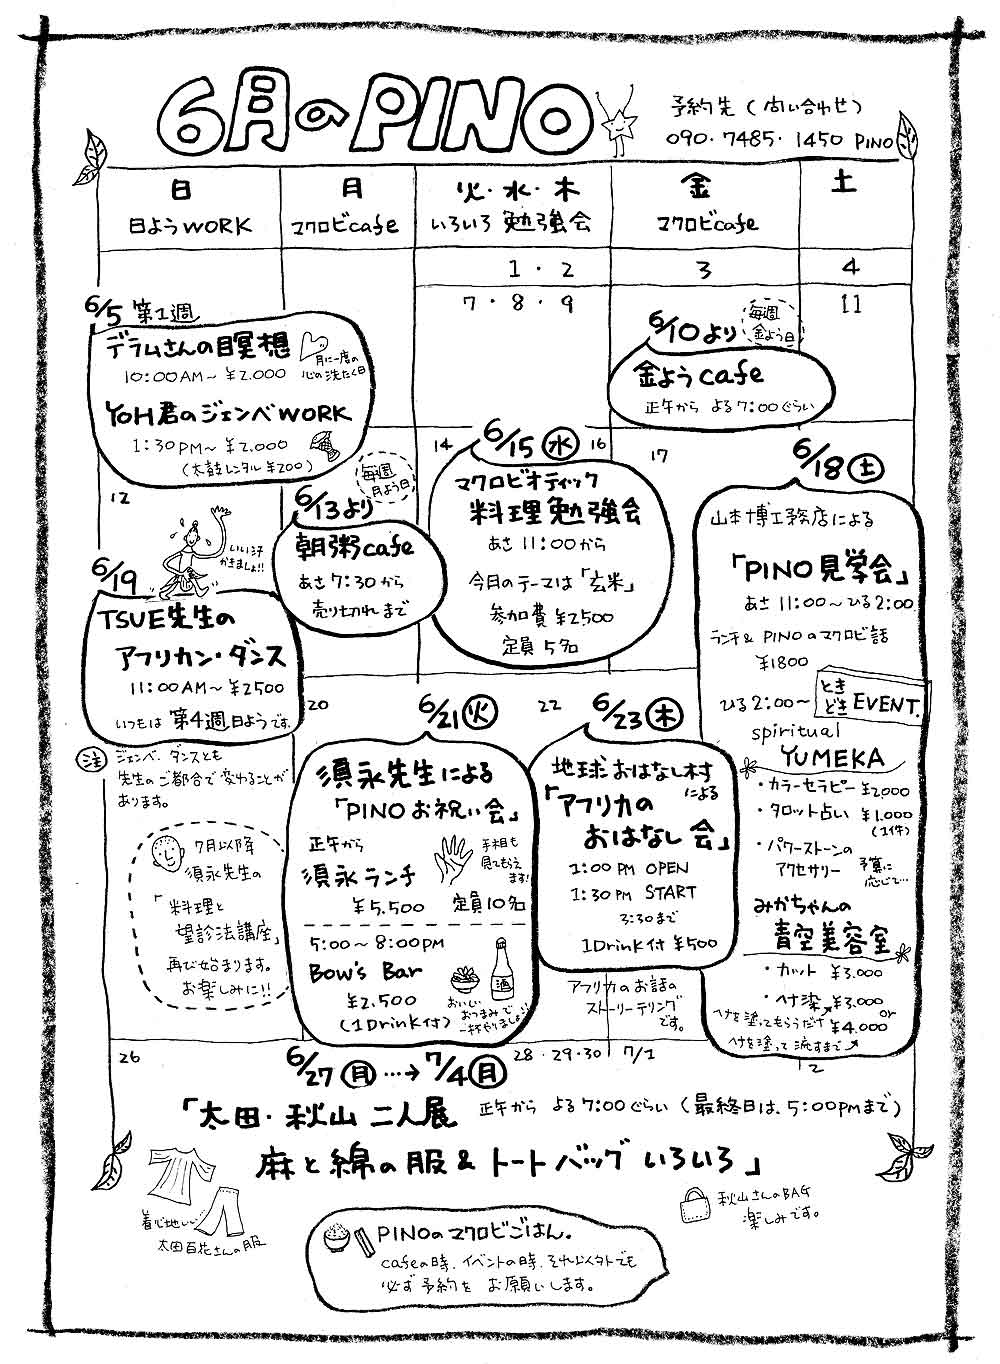 6月のPINO
予約先(問い合わせ)
090・7485・1450 PINO
日
日ようWORK
月
マクロビcafe
火・水・木
いろいろ 勉強会
金
マクロビcafe
土
1・2
3
4
7・8・9
11
6/5 第1週
デラムさんの瞑想
10:00AM~ ¥2,000
月に一度の
心の洗たく日
YOH君のジェンベWORK
1:30PM~ ¥2,000
(太鼓レンタル ¥200)
6/10より
毎週
金よう日
金ようcafe
正午から よる7:00ぐらい
12
6/13より
毎週
月よう日
朝粥cafe
あさ7:30から
売り切れまで
14
6/15(水)
16
マクロビオティック
料理勉強会
あさ11:00から
今月のテーマは「玄米」
参加費 ¥2500
定員 5名
17
6/18(土)
山本博工務店による
「PINO見学会」
あさ11:00~ひる2:00
ランチ&PINOのマクロビ話
¥1800
ひる2:00~
ときどき EVENT.
spiritual
YUMEKA
・カラーセラピー ¥2,000
・タロット占い ¥1,000
(1件)
・パワーストーンの
アクセサリー 予算に
応じて…
みかちゃんの
青空美容室
・カット ¥3,000
・ヘナ染 ¥3,000
or
ヘナを塗ってもらうだけ ¥4,000
ヘナを塗って流すまで
6/19
いい汗
かきましょ!!
TSUE先生の
アフリカン・ダンス
11:00AM~ ¥2500
いつもは 第4週日ようです.
注 ジェンベ、ダンスとも
先生のご都合で変わることが
あります。
7月以降
須永先生の
「料理と
望診法講座」
再び始まります。
お楽しみに!!
20
6/21(火)
須永先生による
「PINOお祝い会」
正午から
須永ランチ
¥5,500 定員10名
手相も
見てもらえ
ます!
5:00~8:00PM
Bow's Bar
¥2,500
(1Drink付)
酒
おいしい
おつまみで
一杯やりましょ!!
22
6/23(木)
地球おはなし村
による
「アフリカの
おはなし会」
1:00PM OPEN
1:30PM START
3:30まで
1Drink付 ¥500
アフリカのお話の
ストーリーテリング
です。
26
6/27(月)…→7/4(月)
28・29・30
7/1
2
「太田・秋山 二人展 正午から よる7:00ぐらい(最終日は、5:00PMまで)
麻と綿の服&トートバッグ いろいろ」
着心地いい
太田百花さんの服
秋山さんのBAG
楽しみです。
PINOのマクロビごはん。
cafeの時、イベントの時、それ以外でも
必ず予約を お願いします。